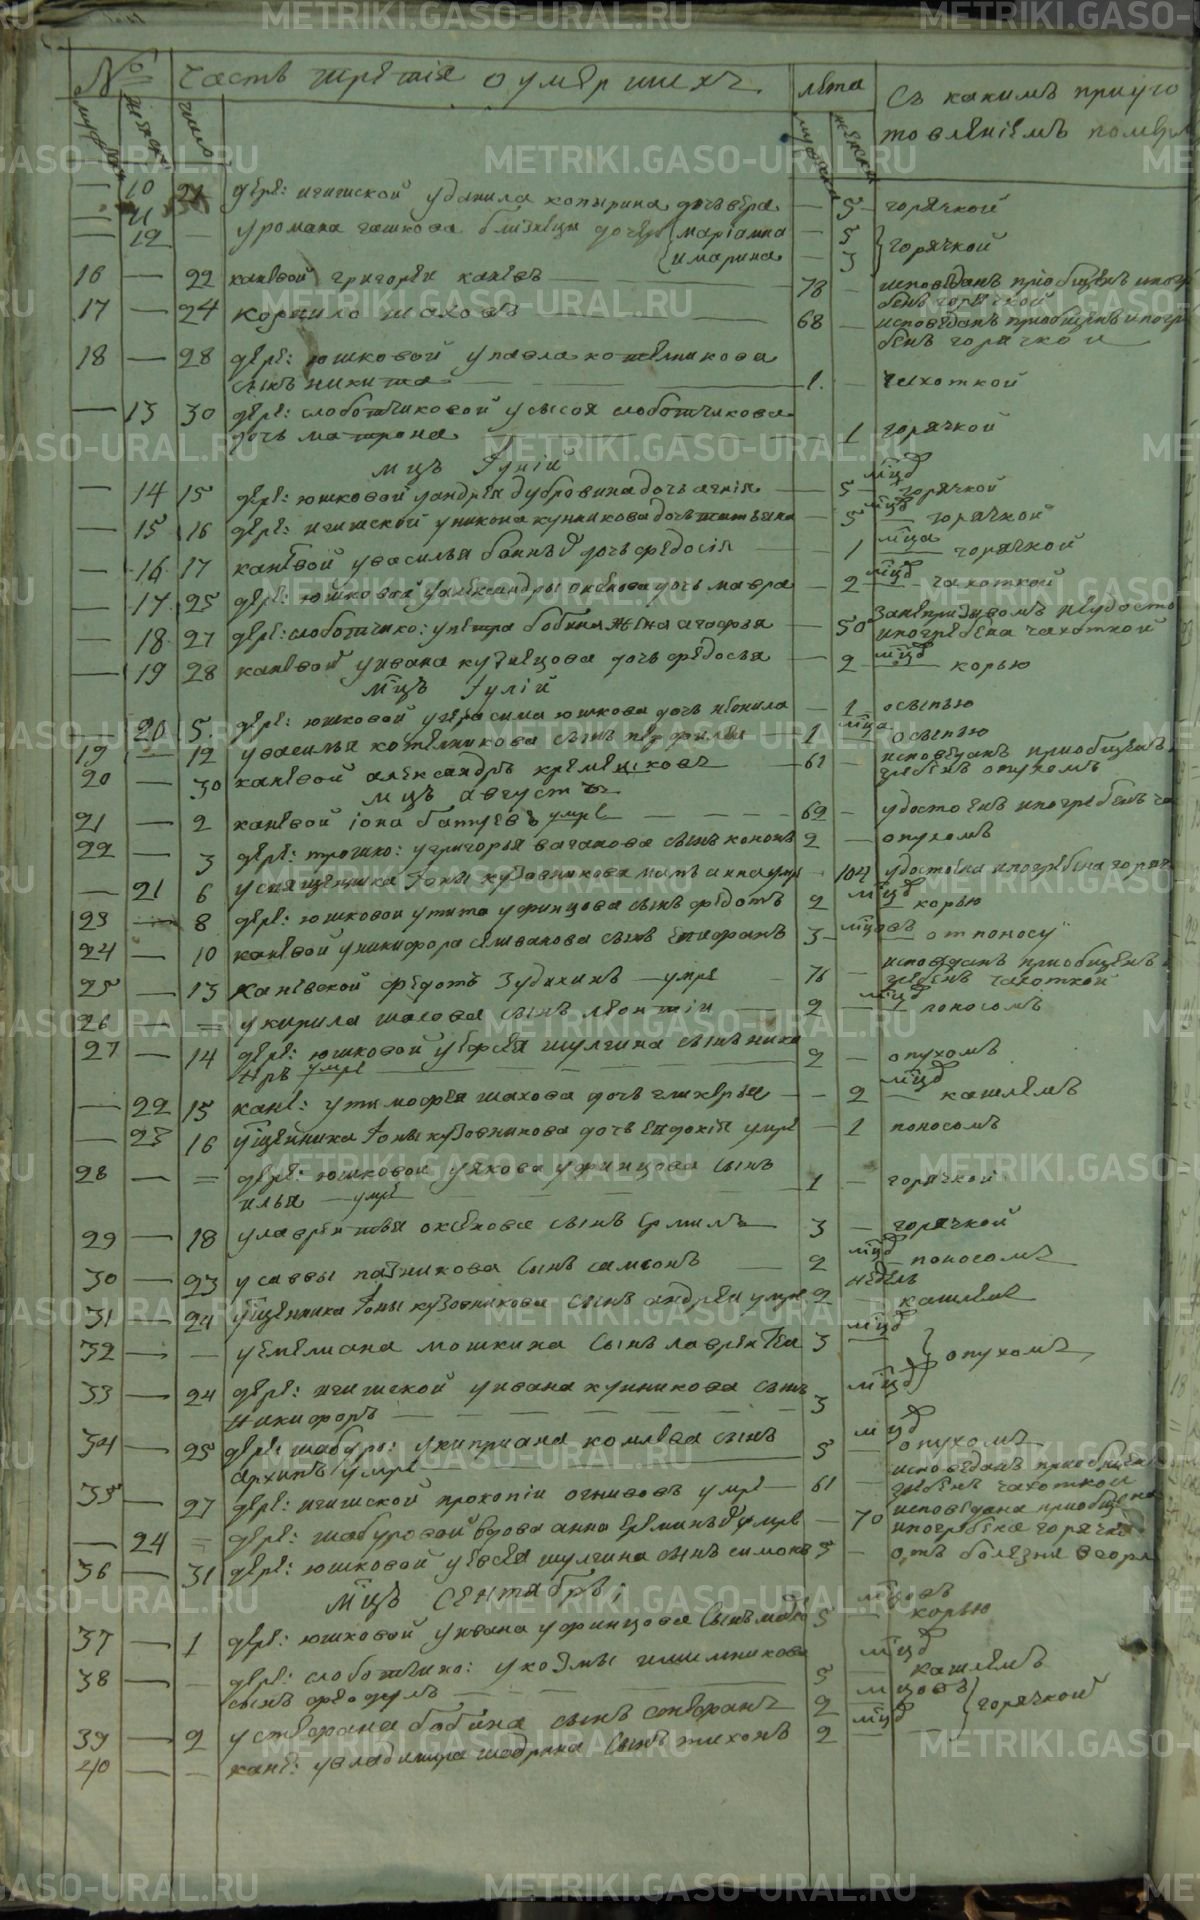 № Часть третія о умершихъ лета Съ какимъ приуго
мужска женска число мужска женска товленіемъ померл
— 10 21 дере: ичигиской у данила копырина дочь вера — 5 — горячкой
— 11
— 12 — у романа гашкова близнецы дочери {маріамна — 5
{и марина — 3 } горячкой
16 — 22 каневой григорей каневъ — 78 — исповеданъ приобщенъ и погре
бенъ горячкой
17 — 24 корнило шаховъ — 68 — исповеданъ приобщенъ и погре
бенъ горячкой
18 — 28 дере: юшковой у павла котельникова
сынъ никита — 1. — чахоткой
— 13 30 дере: слоботчиковой у сысоя слоботчикова
дочь матрона — 1 горячкой
мцъ Іуній
— 14 15 дере: юшковой у андрея дубровина дочь агнія — 5 мцд горячкой
— 15 16 дере: ичигиской у никона кунникова дочь татьяна — 5 мцд — горячкой
— 16 17 каневой у василья дочь федосія — 1 мца — горячкой
— 17 25 дере: юшковой у александры дочь мавра — 2 мцд — чахоткой
— 18 27 дере: слоботчико: у петра бобина жена агафья — 50
и погребена чахоткой
— 19 28 каневой у ивана кузнецова дочь федосья — 2 мцд — корью
мцъ Іулій
— 20 5 дере: юшковой у герасима юшкова дочь неонила — 1 — осыпью
19 — 12 у василья котельникова сынъ перфилей — 1 мца — осыпью
20 — 30 каневой александръ кремешковъ — 61 — исповеданъ приобщенъ
гребенъ опухомъ
мцъ августъ
21 — 2 каневой іона батуевъ умре — 69 — удостоенъ и погребенъ ча
22 — 3 дере: трошко: у григорья ваганова сынъ кононъ 2 — опухомъ
— 21 6 у священника Іоны кузовникова мать анна умре — 104 удостоена и погребена горяч
23 — 8 дере: юшковой у тита уфинцова сынъ федотъ 2 мцд — корью
24 — 10 каневой у никифора селиванова сынъ епифанъ 3 — мцовъ — от поносу
25 — 13 Каневской федотъ Зудихинъ — умре 76 — исповеданъ приобщенъ
гребенъ чахоткой
26 — = у кирила шахова сынъ леонтій — 2 — мцд поносомъ
27 — 14 дере: юшковой у евсея шулгина сынъ ника
нръ умре — 2 — опухомъ
— 22 15 кане: у тимофея шахова дочь гликерья — — 2 мцд — кашлемъ
— 23 16 у щенника Іоны кузовникова дочь евдокія умре — 1 поносомъ
28 — = дере: юшковой у якова уфинцова сынъ
илья — умре — 1 — горячкой
29 — 18 у лаврентья сынъ ермилъ 3 — горячкой
30 — 23 у саввы пазникова сынъ самсонъ — 2 мцд поносомъ
31 — 24 у щенника Іоны кузовникова сынъ андрей умре 2 недель — кашлемъ
32 — — у емелиана мошкина сынъ лаврентей 3 мцд
} опухомъ
33 — 24 дере: ичигиской у ивана кунникова сынъ
никифоръ — 3 мцд
34 — 25 дере: шабуро: у киприана комлева сынъ
архипъ умре — 5 мцд — опухомъ
35 — 27 дере: ичигиской прокопій огнивовъ умре — 61 исповеданъ приобщенъ
гребенъ чахоткой
— 24 = дере: шабуровой вдова анна умре — 70 исповедана приобщена
и погребена горячко
36 — 31 дере: юшковой у евсея шулгина сынъ симонъ 5 — отъ болезни в горл
мцъ Сентябрь:
37 — 1 дере: юшковой у ивана уфинцова сынъ 5 мцовъ — корью
38 — — дере: слоботчико: у козмы
сынъ феодулъ — 5 мцд — кашлемъ
39 — 2 у стефана бобина сынъ стефанъ 2 мцовъ
} горячкой
40 — — кане: у владимира шадрина сынъ тихонъ 2 мцд —
METRIKI.GASO-URAL.RU